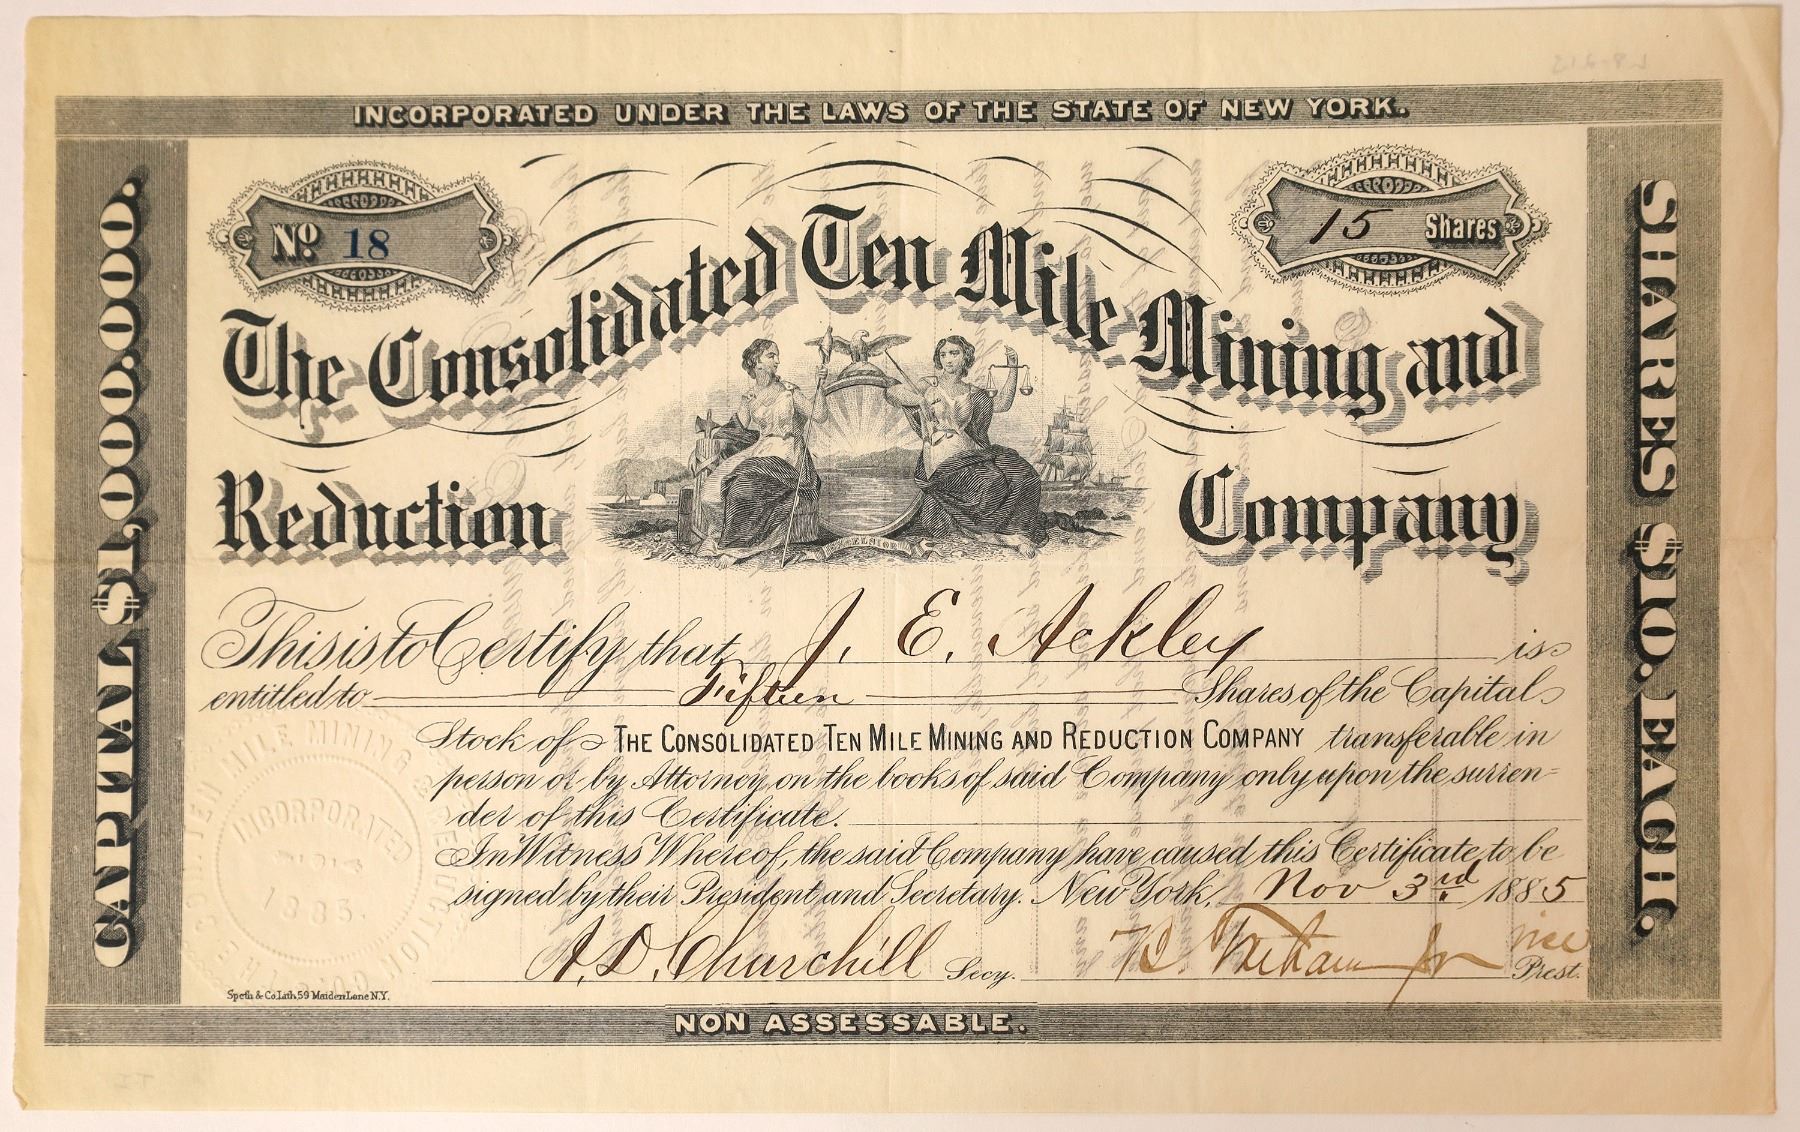 INCORPORATED UNDER THE LAWS OF THE STATE OF NEW YORK.
No 18
15 Shares
The Consolidated Ten Mile Mining and
Reduction Company
EXCELSIOR
CAPITAL $1,000,000.
SHARES $10. EACH.
This is to Certify that J. E. Ackley is
entitled to Fifteen Shares of the Capital
Stock of THE CONSOLIDATED TEN MILE MINING AND REDUCTION COMPANY transferable in
person or by Attorney on the books of said Company only upon the surren=
der of this Certificate.
In Witness Whereof, the said Company have caused this Certificate to be
signed by their President and Secretary. New York, Nov 3rd 1885
A. D. Churchill Secy. Jr vice Prest.
TEN MILE MINING & REDUCTION CO.
INCORPORATED
1885.
Speth & Co. Lith. 59 Maiden Lane N.Y.
NON ASSESSABLE.